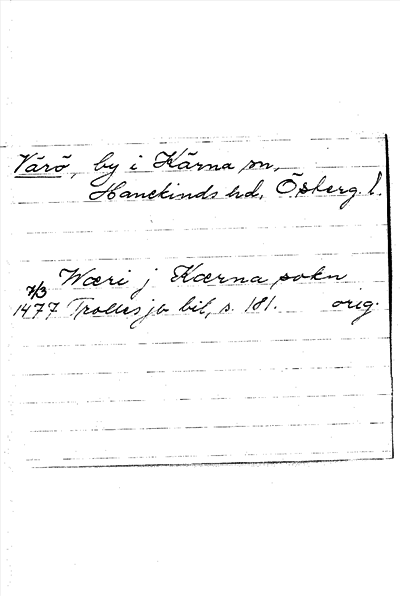 Värö, by i Kärna sn,
Hanekinds hd, Östberg. l.
Wæri j Kærna sokn
7/3
1477 Trolles jb bil, s. 181. orig.